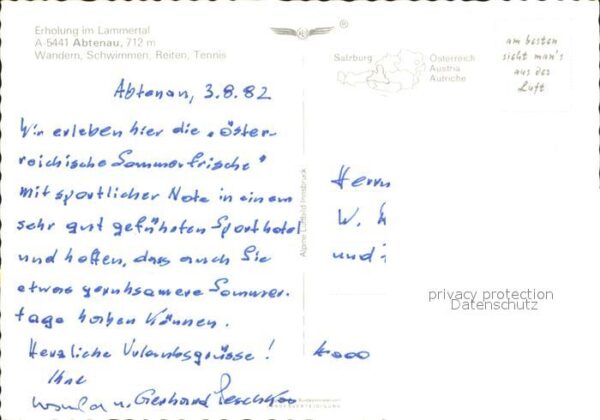 Erholung im Lammertal
A-5441 Abtenau, 712 m
Wandern, Schwimmen, Reiten, Tennis
®
Salzburg
Österreich
Austria
Autriche
am besten
sieht man's
aus der
Luft
Abtenau, 3.8.82
Wir erleben hier die "öster-
reichische Sommerfrische"
mit sportlicher Note in einem
sehr gut geführten Sporthotel
und hoffen, dass auch Sie
etwas geruhsamere Sommer-
tage haben können.
Herzliche Urlaubsgrüsse!
Ihre
Ursula u. Gerhard
Alpine Luftbild Innsbruck
Herrn
W.
und
4000
privacy protection
Datenschutz